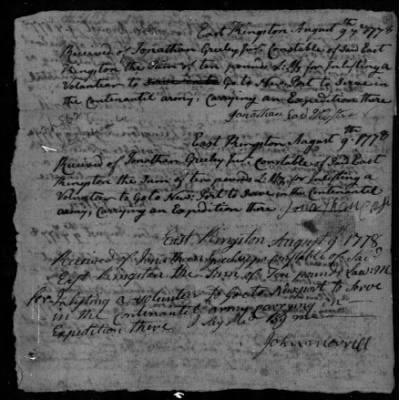 East Kingston August 9th 1778
Received of Jonathan Greely Jur. Constable of Said East
Kingston the Sum of ten pounds L:My for Inlisting a
Volunteer to Go to New Port to Serve in
the Continental army, Carrying an Expedition there
Jonathan
East Kingston August 9th 1778
Received of Jonathan Greely Jur. Constable of Said East
Kingston the Sum of ten pounds L:My for Inlisting a
Volunteer to Go to New Port to Serve in the Continental
army, Carrying an Expedition there
East Kingston August 9 1778
Received of Constable of Sai
East Kingston the Sum of Ten pounds Law: M
for Inlisting a volunteer to Go to Newport to Serve
in the Continental army carrying
Expedition there me
John Morrill